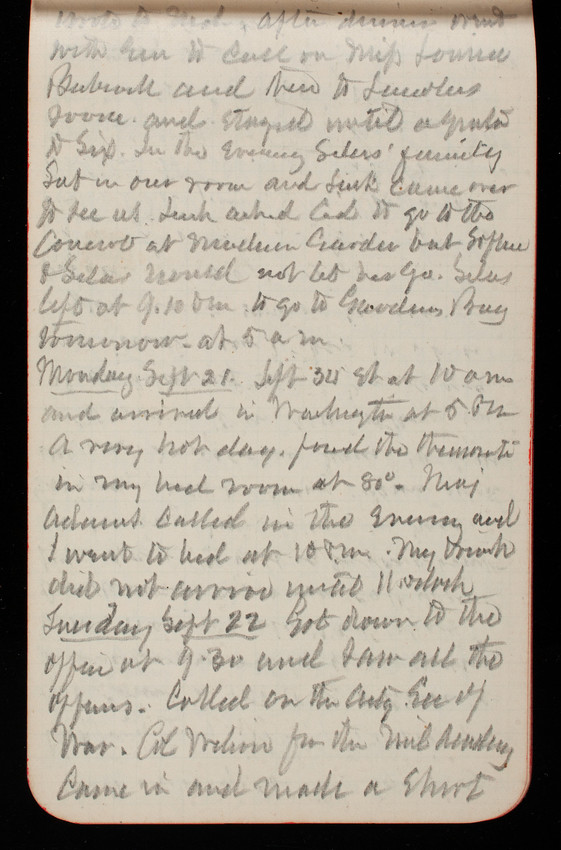 wrote to      after dinner went
with Gen to call on Miss Louisa
Babcock and then to Lincolns
room. and stayed until a quarter
to Six. In the Evening Silas' family
Sat in our room and Link came over
to see us. Link asked     to go to the
Concert at Madison Garden but Sophie
& Silas would not let her go. Silas
left at 9.10 Pm to go to      Bay
tomorrow at 5 a m.
Monday Sept 21. Left 34 St at 10 am
and arrived in Washington at 5 Pm
A very hot day. found the
in my bed room at 80°. Maj
Adams called in the Evening and
I went to bed at 10 Pm. My trunk
did not arrive until 11 oclock
Tuesday Sept 22 Got down to the
office at 9.30 and Saw all the
officers. Called on the Actg Sec of
War. Col Wilson from the Mil Academy
Came in and made a Short